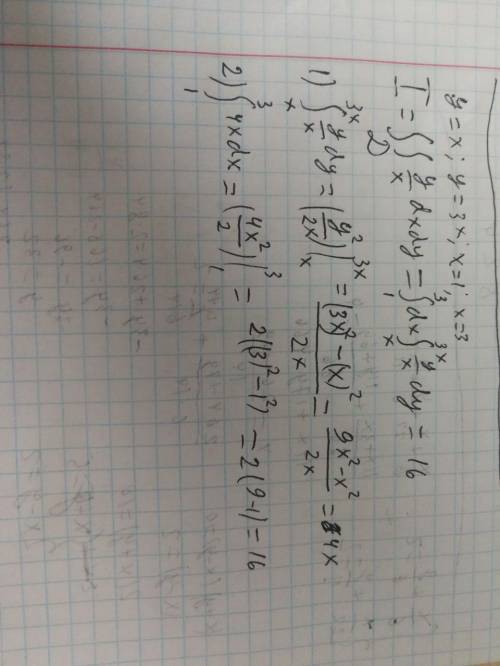 y = x; y = 3x; x = 1; x = 3
I = ∫∫_D y/x dxdy = ∫_1^3 dx ∫_x^{3x} y/x dy = 16
1) ∫_x^{3x} y/x dy = (y²/2x)|_x^{3x} = (3x)² - (x)² / 2x = 9x² - x² / 2x = 4x
2) ∫_1^3 4x dx = (4x²/2)|_1^3 = 2((3)² - 1²) = 2(9-1) = 16